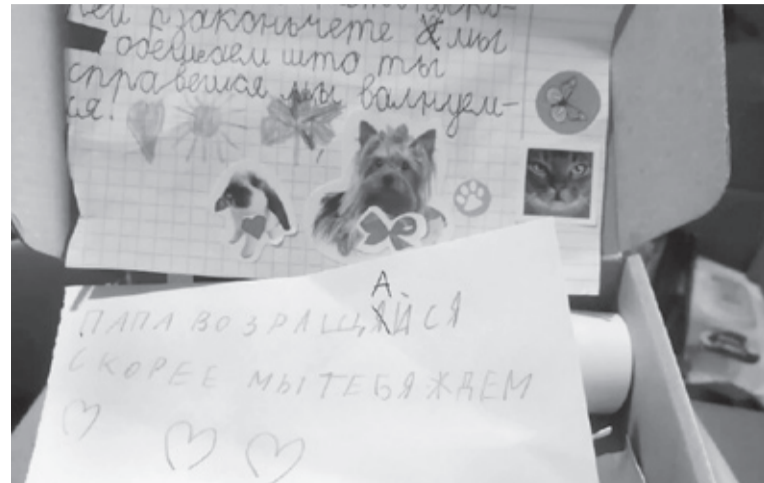 рзаконьчете мы
обещаем што ты
справешся мы валнуем-
ся!
ПАПА ВОЗРАЩАЙСЯ
СКОРЕЕ МЫ ТЕБЯ ЖДЕМ